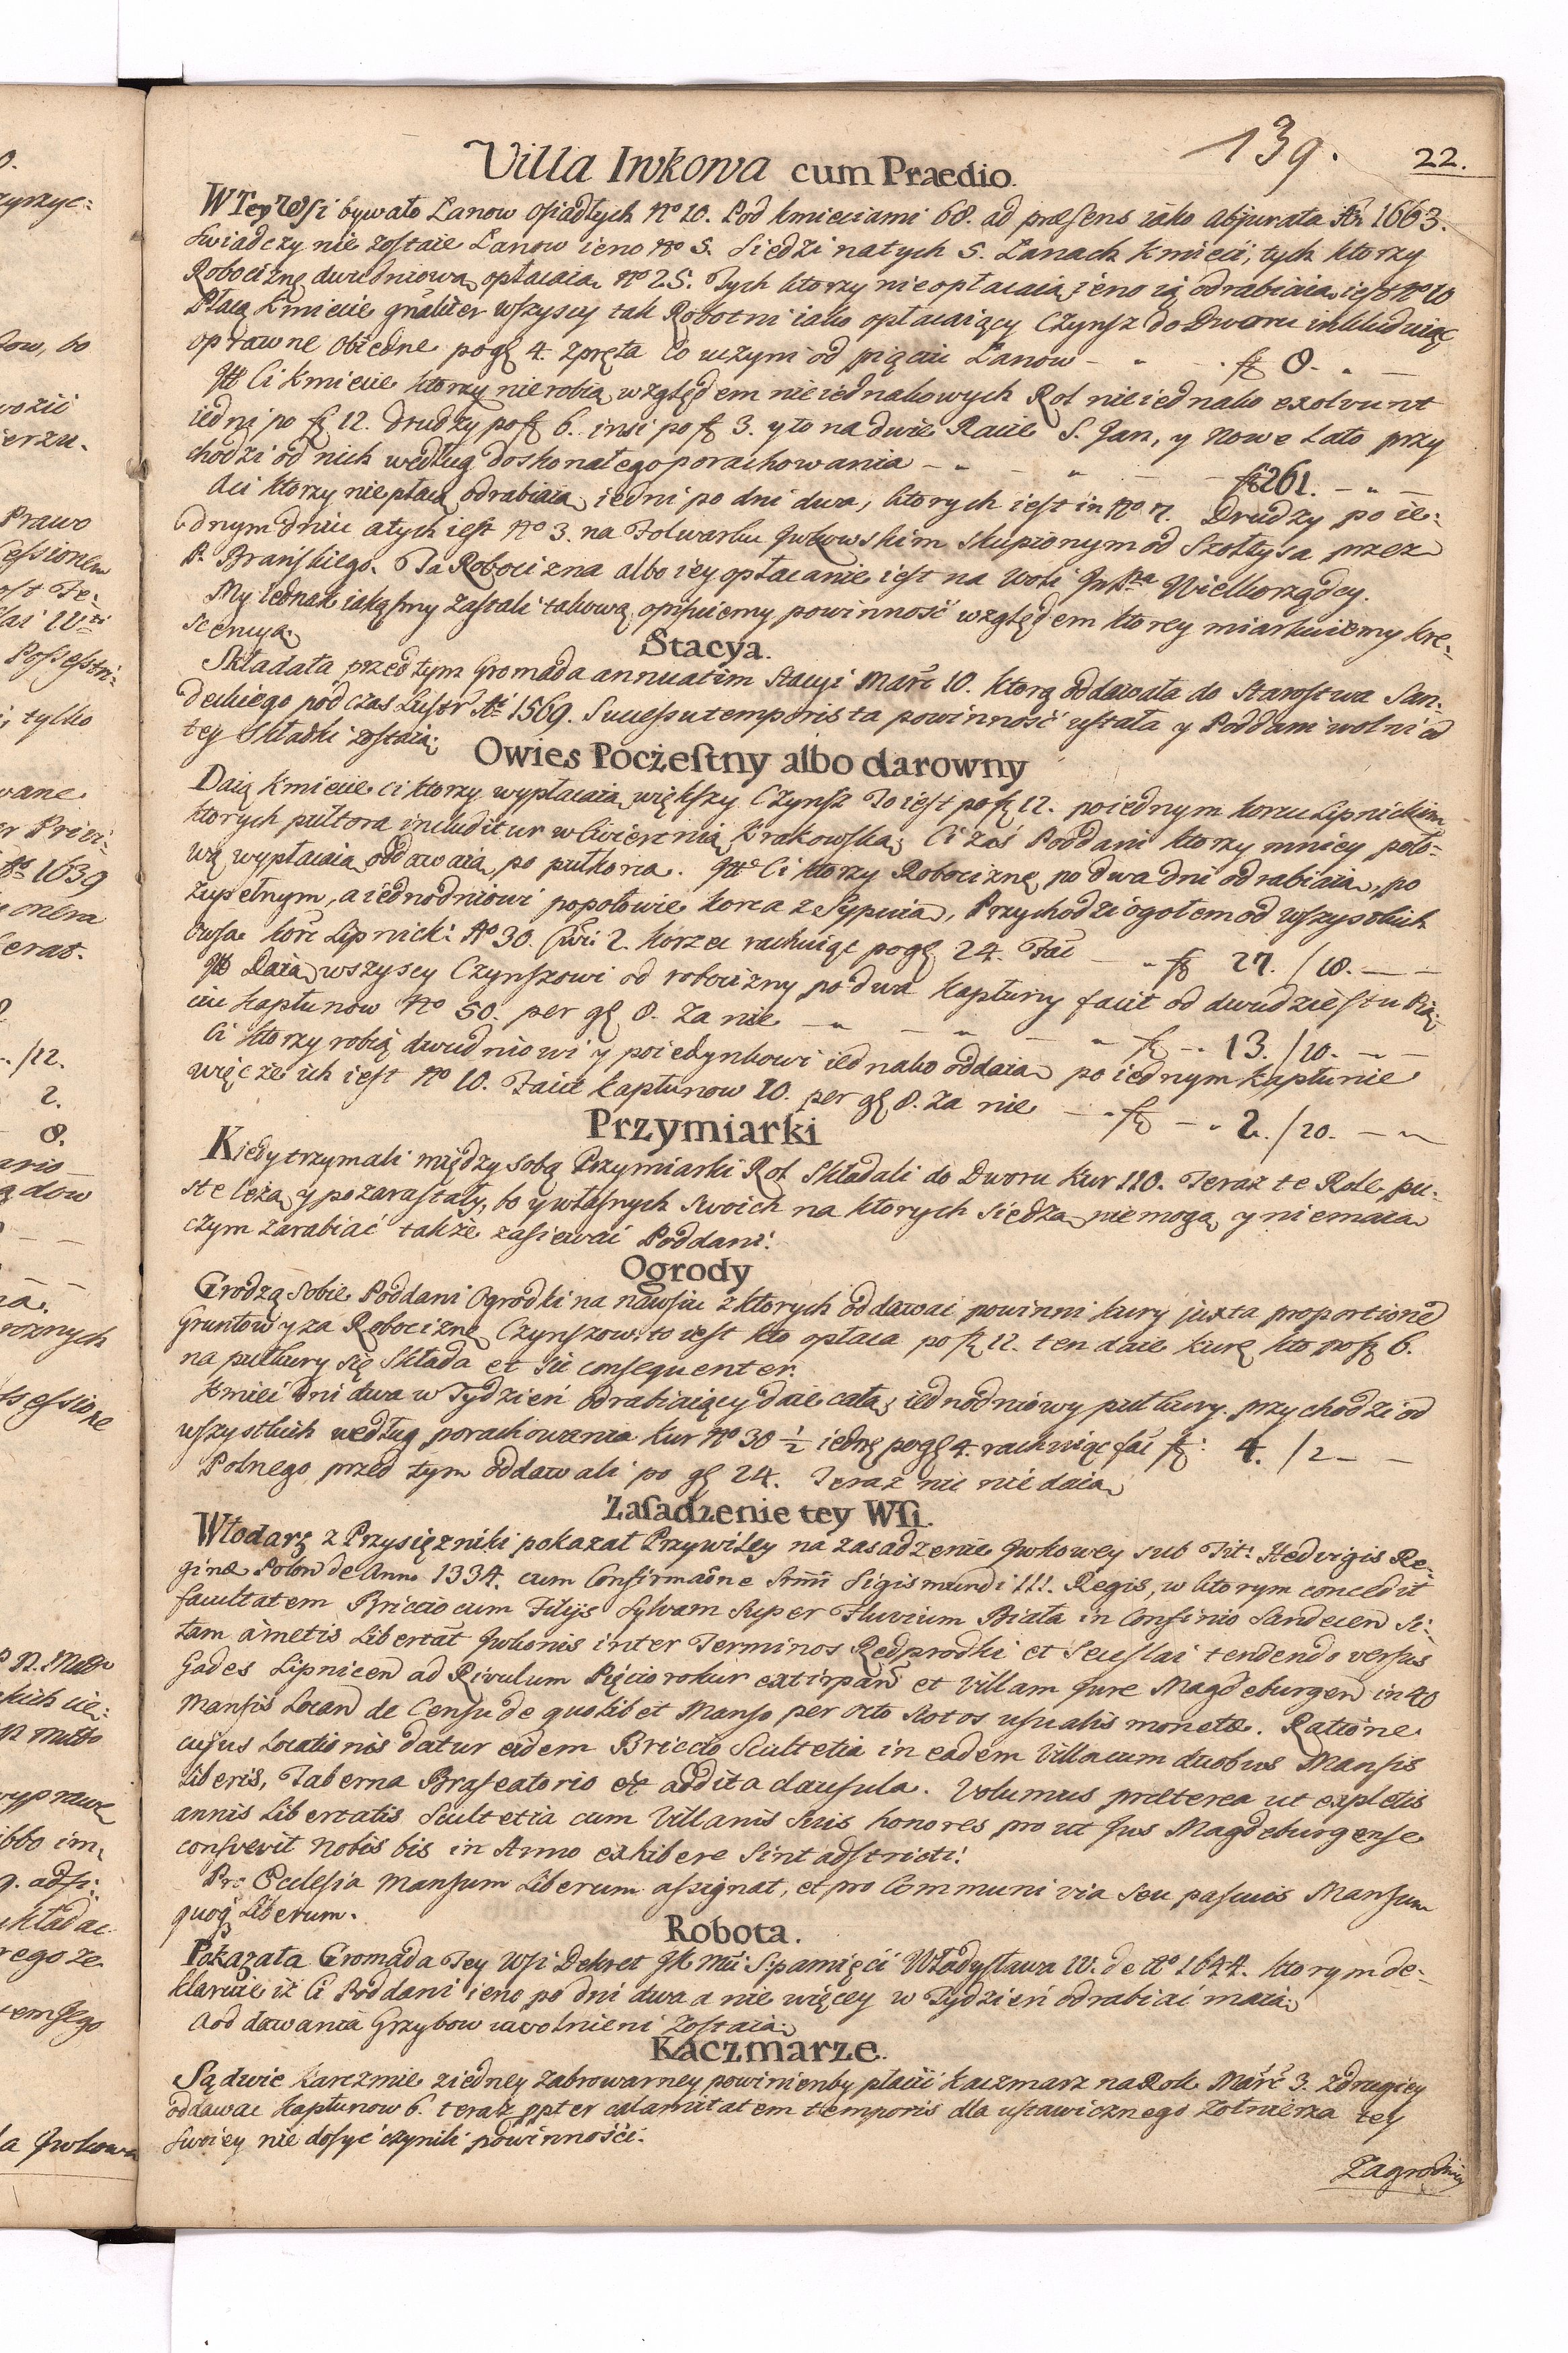 139.
22.
Villa Iwkowa cum Praedio.
W Tey Wsi bywało Łanow osiadłych No 10. Pod kmieciami 68. ad præsens iako abjurata Ao 1663.
swiadczy nie zostaie Łanow ieno No 5. Siedzi na tych 5. Łanach kmieci, tych ktorzy
Robociznę dwudniową opłacaią No 25. Tych ktorzy nie opłacaią ieno ią odrabiaią iest No 10
Płacą Kmiecie gnãliter wszyscy tak Robotni iako opłacaiący Czynsz do Dworu inkluduiąc
oprawne obiedne po gł 4. z pręta Co uczyni od pięciu Łanow - " - fł 8. " -
Itt Ci kmiecie ktorzy nie robią względem nieiednakowych Rol nieiednako exolvunt
iedni po fł 12. drudzy po fł 6. insi po fł 3. y to na dwie Racie S. Jan, y Nowe Lato przy
chodzi od nich według doskonałego porachowania - " - " - fł 261. - " -
Aci ktorzy nie płacą odrabiaią iedni po dni dwa, ktorych iest in No 7. Drudzy po ie:
dnym dniu a tych iest No 3. na Folwarku Iwkowskim skupionym od Szołtysa przez
P. Branskiego. Ta Robocizna albo iey opłacanie iest na woli Wielkorządcy.
My iednak iakąsmy zastali takową opisuiemy powinność względem ktorey miarkuiemy kre:
scencyą.
Stacya.
Składała przed tym Gromada annuatim Stacyi Marč 10. ktorą oddawała do Starostwa San:
deckiego pod czas Lustr Ai 1569. Successu temporis ta powinność ustała y Poddani wolni od
tey składki zostaią.
Owies Poczestny albo darowny
Daią kmiecie ci ktorzy wypłacaią większy Czynsz To iest po fł 12. po iednym korcu Lipnickim
ktorych pułtora includitur w Cwiertnią Krakowską; Ci zaś Poddani ktorzy mniey poło:
wą wypłacaią oddawaią po pułkorca. Itt Ci ktorzy Robociznę po dwa dni odrabiaią, po
zupełnym, a iednodniowi po połowie korca z Sypuią, Przychodzi ogołem od wszystkich
owsa korč Lipnick: No 30. Cwi: 2. korzec rachuiąc po gł 24. Fac - " fł 27. / 18. - -
Itt Daią wszyscy Czynszowi od robocizny po dwa kapłuny facit od dwudziestu Pię:
ciu kapłunow No 50. per gł 8. za nie - " - " - " fł - " 13. / 10. - -
Ci ktorzy robią dwudniowi y poiedynkowi iednako oddaią po iednym kapłunie
więc że ich iest No 10. Facit kapłunow 10. per gł 8. za nie - " fł - " 2. / 20. - "
Przymiarki
Kiedy trzymali między sobą Przymiarki Rol składali do Dworu kur 110. Teraz te Role pu:
ste leżą y pozarastały, bo y własnych swoich na ktorych siedzą nie mogą y nie maią
czym zarabiać także zasiewać Poddani.
Ogrody
Grodzą sobie Poddani Ogrodki na nawsiu z ktorych oddawać powinni kury juxta proportioned
Gruntow y za Robociznę Czynszow. to iest kto opłaca po fł 12. ten daie kurę kto po fł 6.
na pułkury się składa et sic consequenter.
Kmieć dni dwa w Tydzień odrabiaiący daie całą, iednodniowy pułkury. przychodzi od
wszystkich według porachowania kur No 30 ½ iednę po gł 4. rachuiąc fac fł: 4. / 2 - -
Polnego przed tym oddawali po gł 24. Teraz nic nie daią.
Zasadzenie tey WSi.
Włodarz z Przysiężniki pokazał Przywiley na zasadzenie Iwkowey sub Tit: Hedvigis Re:
ginæ Polon de Anno 1334. cum Confirmaõne Srmi Sigismundi III. Regis, w ktorym concedit
facultatem Briccio cum Filijs Sylvam super Fluvium Biała in Confinio Sandecen Si:
tam à metis Libertat Iwkonis inter Terminos Redprodki et Secislai tendendo versus
Gades Lipnicen ad Rivulum Pięciorokur extirpand et Villam Jure Magdeburgen in 40
Mansis Locand de Censu de quolibet Manso per octo Scotos usualis monetæ. Ratione
cujus Locationis datur eidem Briccio Scultetia in eadem Villa cum duobus Mansis
Liberis, Taberna Braseatorio et addita clausula. Volumus præterea ut expletis
annis Libertatis Scultetia cum Villanis suis honores prout Jus Magdeburgense
consvevit nobis bis in Anno exhibere sint adstricti.
Pro Ecclesia Mansum Liberum assignat, et pro Communi via seu pascuis Mansum
quoq Liberum.
Robota.
Pokazała Gromada Tey Wsi Dekret JK Mci S. pamięci Władysława IV. de Ao 1644. ktorym de:
klaruie iż Ci Poddani ieno po dni dwa a nie więcey w Tydzień odrabiać maią
A od dawania Grzybow uwolnieni zostaią.
Kaczmarze.
Są dwie karczmie z iedney zabrowarney powinienby płacić kaczmarz na Rok Marč 3. z drugiey
oddawac kapłunow 6. teraz ppter calamitatem temporis dla ustawicznego Zołnierza tey
swoiey nie dosyć czynili powinności.
Zagrodnicy